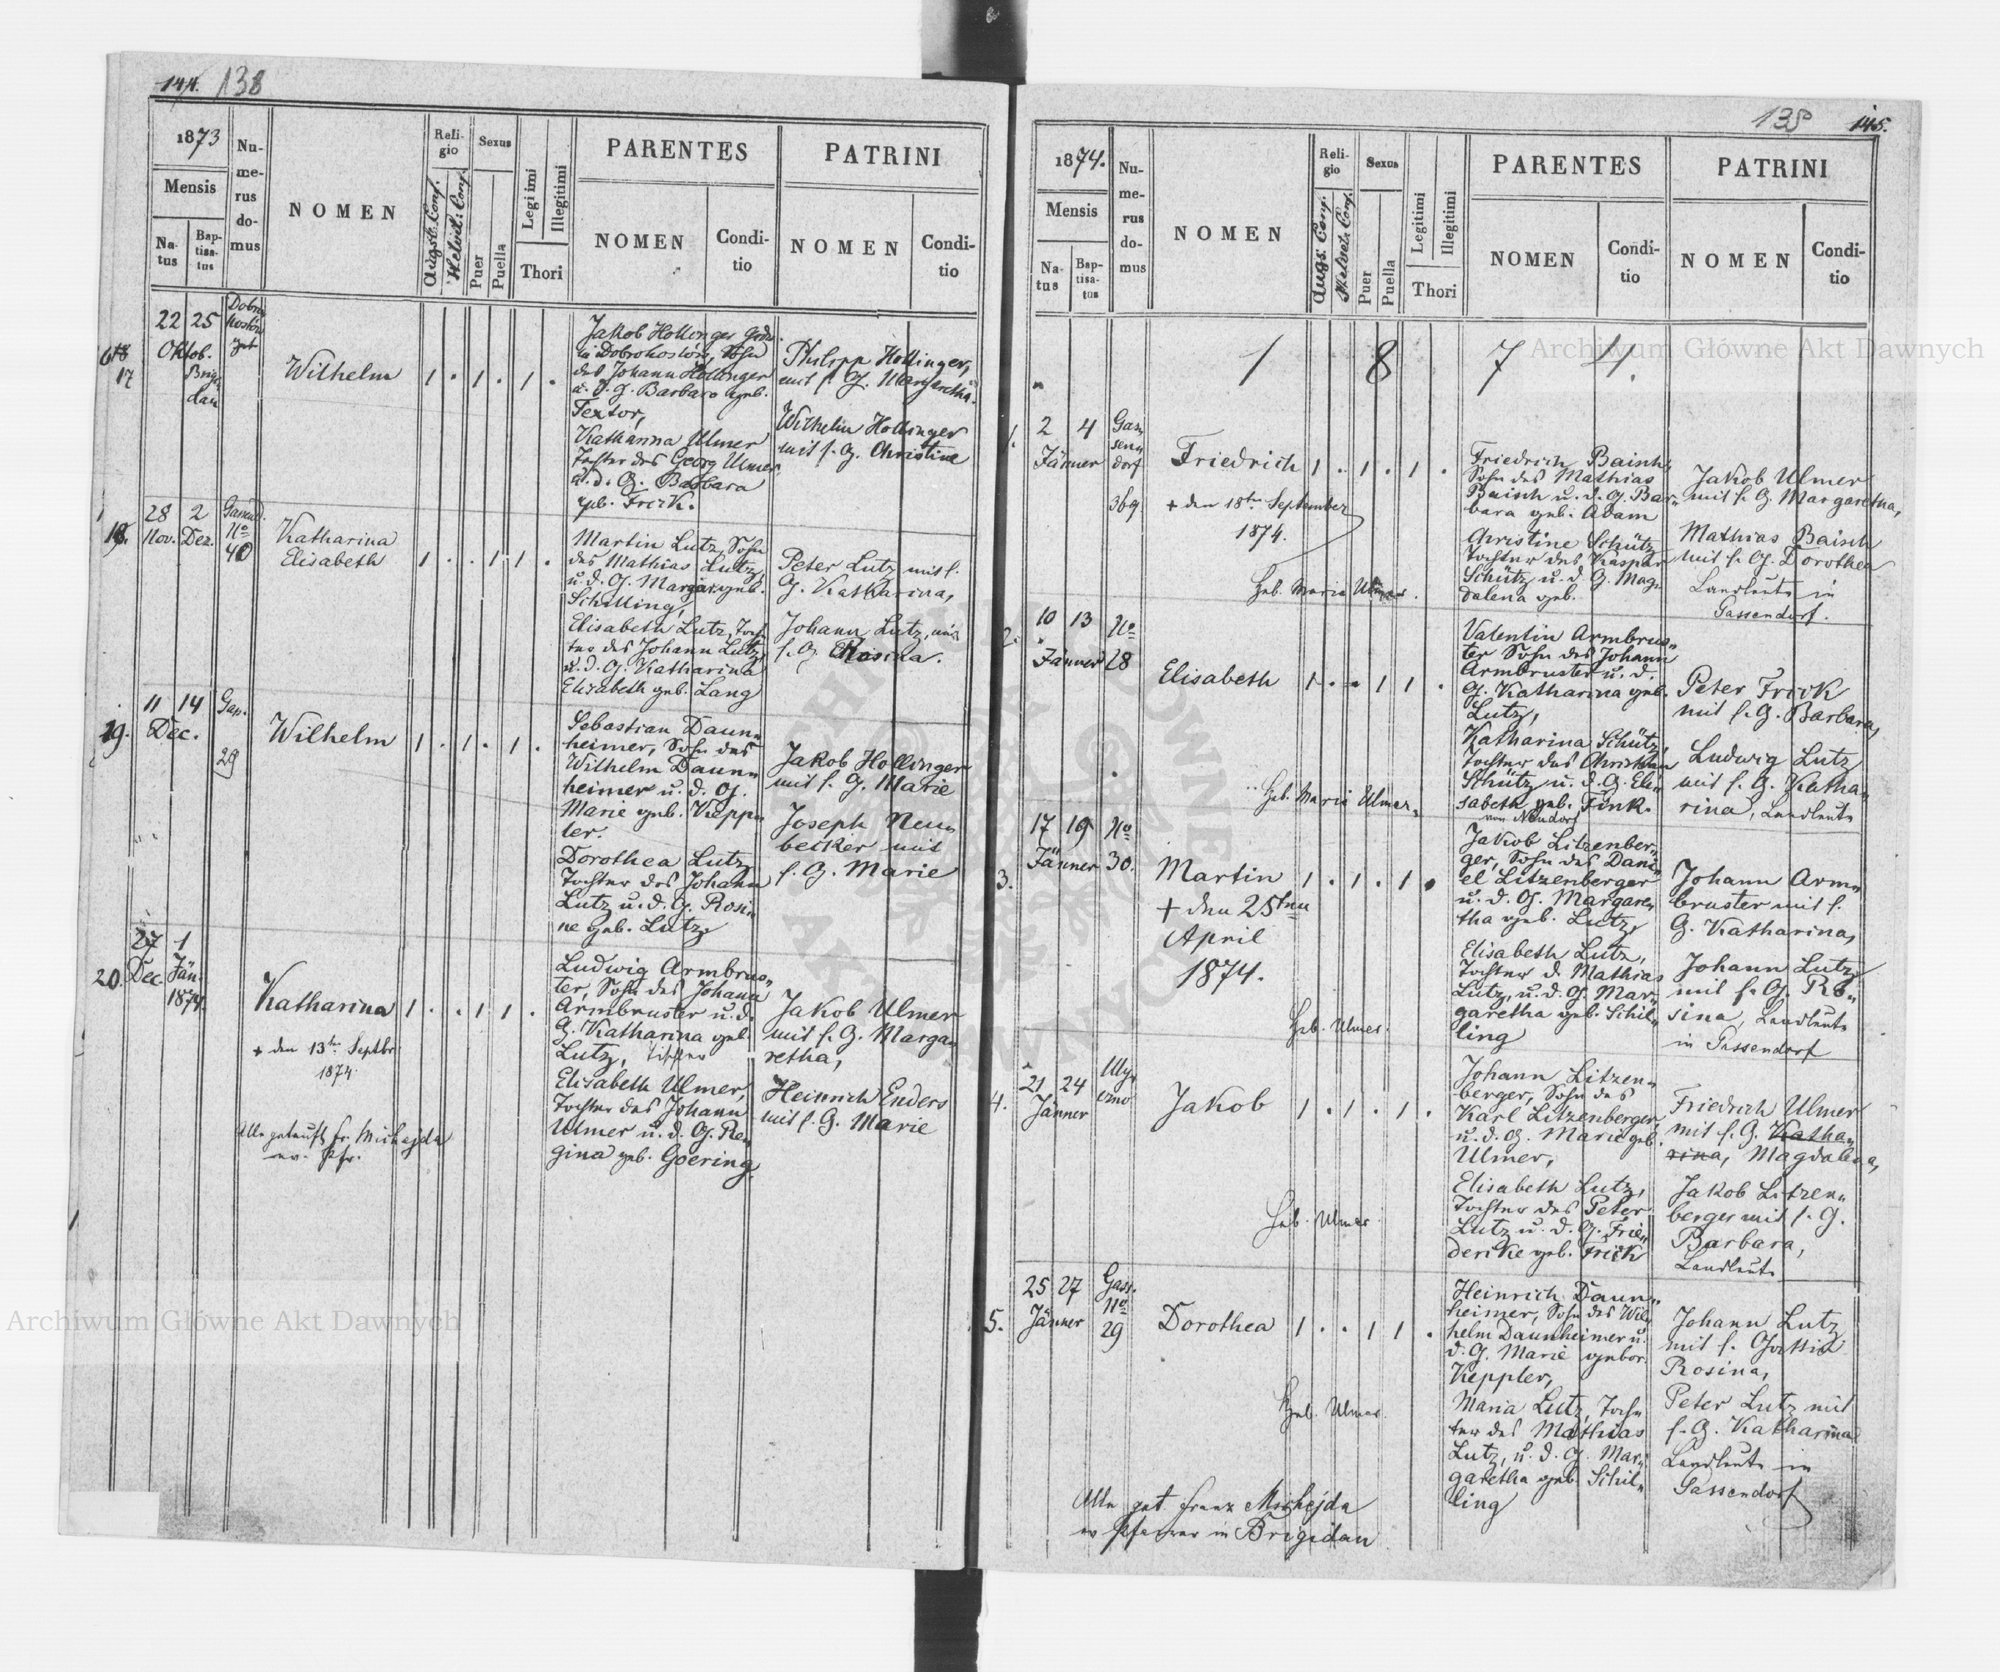 144. 138
1873
Mensis
Na-
tus
Bap-
tisa-
tus
Nu-
me-
rus
do-
mus
NOMEN
Reli-
gio
Augsb. Conf.
Helvet. Conf.
Sexus
Puer
Puella
Legitimi
Illegitimi
Thori
PARENTES
NOMEN
Condi-
tio
PATRINI
NOMEN
Condi-
tio
17
22 25
Oktob.
Wilhelm 1 . 1 . 1 .
Jakob Hollinger
in Dobrohostów, Sohn
des Johann Hollinger
u. d. G. Barbara geb.
Textor,
Katharina Ulmer
Tochter des Georg Ulmer
u. d. G. Barbara
geb. Frick.
Philipp Hollinger,
mit s. G. Margaretha.
Wilhelm Hollinger
mit s. G. Christine
18.
28 2
Nov. Dez.
No
40
Katharina
Elisabeth 1 . . 1 1 .
Martin Lutz, Sohn
des Mathias Lutz,
u. d. G. Margar. geb.
Schilling,
Elisabeth Lutz, Toch-
ter des Johann Lutz,
u. d. G. Katharina
Elisabeth geb. Lang
Peter Lutz mit s.
G. Katharina,
Johann Lutz, mit
s. G. Rosina.
19.
11 14
Dec.
Gas.
29
Wilhelm 1 . 1 . 1 .
Sebastian Daun-
heimer, Sohn des
Wilhelm Daun-
heimer u. d. G.
Marie geb. Kepp-
ler.
Dorothea Lutz
Tochter des Johann
Lutz u. d. G. Rosi-
ne geb. Lutz.
Jakob Hollinger
mit s. G. Marie
Joseph Neu-
becker mit
s. G. Marie
20.
27 1
Dec. Jän.
1874.
Katharina 1 . . 1 1 .
+ den 13ten Septbr
1874
Ludwig Armbrus-
ter, Sohn des Johann
Armbruster u. d.
G. Katharina geb.
Lutz,
Elisabeth Ulmer,
Tochter des Johann
Ulmer u. d. G. Re-
gina geb. Goering.
Jakob Ulmer
mit s. G. Marga-
retha,
Heinrich Enders
mit s. G. Marie
Alle getauft Fr. Michejda
ev. Pfr.
145.
1874.
Mensis
Na-
tus
Bap-
tisa-
tus
Nu-
me-
rus
do-
mus
NOMEN
Reli-
gio
Augs. Conf.
Helvet. Conf.
Sexus
Puer
Puella
Legitimi
Illegitimi
Thori
PARENTES
NOMEN
Condi-
tio
PATRINI
NOMEN
Condi-
tio
1 8 7 4.
1.
2 4
Jänner
Gas-
sen-
dorf
Friedrich 1 . 1 . 1 .
+ den 18ten September
1874.
Geb. Marie Ulmer.
Friedrich Baisch
Sohn des Mathias
Baisch u. d. G. Bar-
bara geb. Adam
Christine Schütz
Tochter des Kaspar
Schütz u. d. G. Mag-
dalena geb.
Jakob Ulmer
mit s. G. Margaretha,
Mathias Baisch
mit s. G. Dorothea
Landleute in
Gassendorf.
2.
10 13
Jänner
No
28
Elisabeth 1 . . 1 1 .
Geb. Marie Ulmer.
Valentin Armbrus-
ter Sohn des Johann
Armbruster u. d.
G. Katharina geb.
Lutz,
Katharina Schütz,
Tochter des Christian
Schütz u. d. G. Eli-
sabeth geb. Fink.
von Neudorf
Peter Frick
mit s. G. Barbara,
Ludwig Lutz
mit s. G. Katha-
rina, Landleute
3.
17 19
Jänner
No
30.
Martin 1 . 1 . 1 .
+ den 25ten
April
1874.
Geb. Ulmer.
Jakob Litzenber-
ger, Sohn des Dani-
el Litzenberger
u. d. G. Margare-
tha geb. Lutz,
Elisabeth Lutz,
Tochter d. Mathias
Lutz, u. d. G. Mar-
garetha geb. Schil-
ling
Johann Arm-
bruster mit s.
G. Katharina,
Johann Lutz
mit s. G. Ro-
sina, Landleute
in Gassendorf
4.
21 24
Jänner
Jakob 1 . 1 . 1 .
Geb. Ulmer.
Johann Litzen-
berger, Sohn des
Karl Litzenberger,
u. d. G. Marie geb.
Ulmer,
Elisabeth Lutz,
Tochter des Peter
Lutz u. d. G. Frie-
derike geb. Frick
Friedrich Ulmer
mit s. G. Katha-
rina, Magdalena,
Jakob Litzen-
berger mit s. G.
Barbara,
Landleute
5.
25 27
Jänner
Gass.
No
29
Dorothea 1 . . 1 1 .
Geb. Ulmer.
Heinrich Daun-
heimer, Sohn des Wil-
helm Daunheimer u.
d. G. Marie gebor.
Keppler,
Maria Lutz, Toch-
ter des Mathias
Lutz, u. d. G. Mar-
garetha geb. Schil-
ling
Johann Lutz
mit s. Gattin
Rosina,
Peter Lutz mit
s. G. Katharina
Landleute in
Gassendorf
Alle get. Franz Michejda
ev Pfarrer in Brigidau
Archiwum Główne Akt Dawnych
Archiwum Główne Akt Dawnych